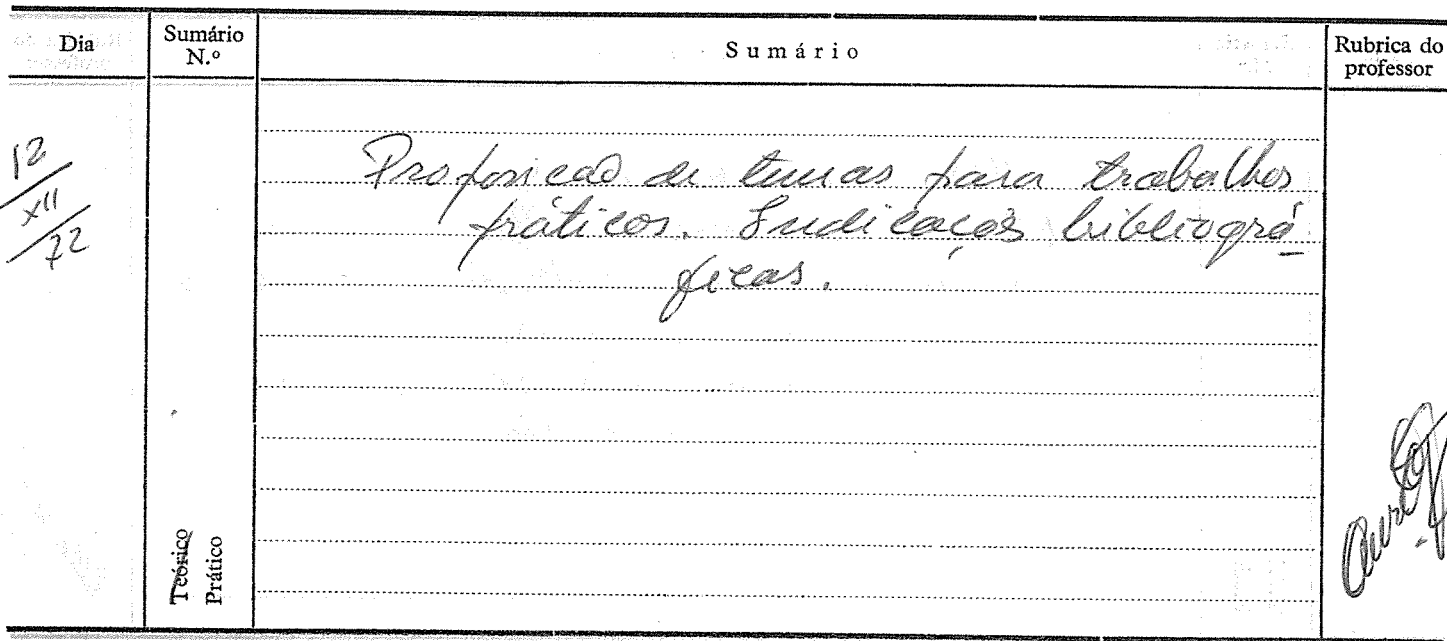 Dia
Sumário N.º
Sumário
Rubrica do professor
12
XII
72
Proposição de temas para trabalhos
práticos. Indicações bibliográ-
ficas.
Teórico
Prático